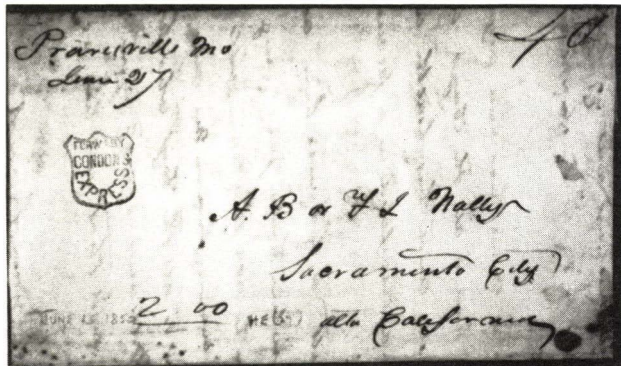 Prairieville Mo
June 27
40
FORW'D BY
CONDON'S
EXPRESS
A. B or F L Nally
Sacramento City
2 00
alta California